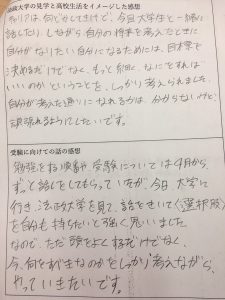 法政大学の見学と高校生活をイメージした感想
話したり しながら 自分の将来を考えたときに
自分がなりたい自分になるためには、目標で
決めるだけでなく、もっと細く、なにをすれば
いいのか ということを、しっかり考えられました
自分が考えた通りに なれるかは 分からないけど
頑張れるようにしたいです。
受験に向けての話の感想
勉強をする順番や 受験については4月から、
ずっと話しをしてもらっているが 今日 大学に
行き、法政大学を見て、話をきいて〈選択肢〉
を自分も持ちたいと強く思いました
なので、ただ頭をよくするだけでなく、
今、何をすべきなのかをしっかり考えながら、
やって いきたいです。